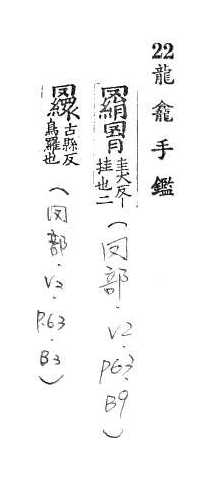 22 龍龕手鑑
羂罥 圭犬反丨
挂也二
(网部.V2.P63.B9)
古縣反
鳥羅也
(网部.V2.P.63.B3)